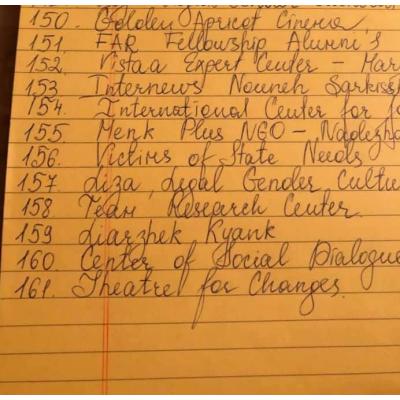 150. Golden Apricot Cinema,
151. FAR Fellowship Alumni's
152. Vistaa Expert Center - Mar
153 Internews Nouneh Sarkiss
154. International Center for
155 Menk Plus NGO - Nadezhd
156. Victims of State Needs
157. Liza, Legal Gender Cultu
158 Team Research Center
159 Liarzhek Kyank
160. Center of Social Dialogue
161. Theatre for Changes.